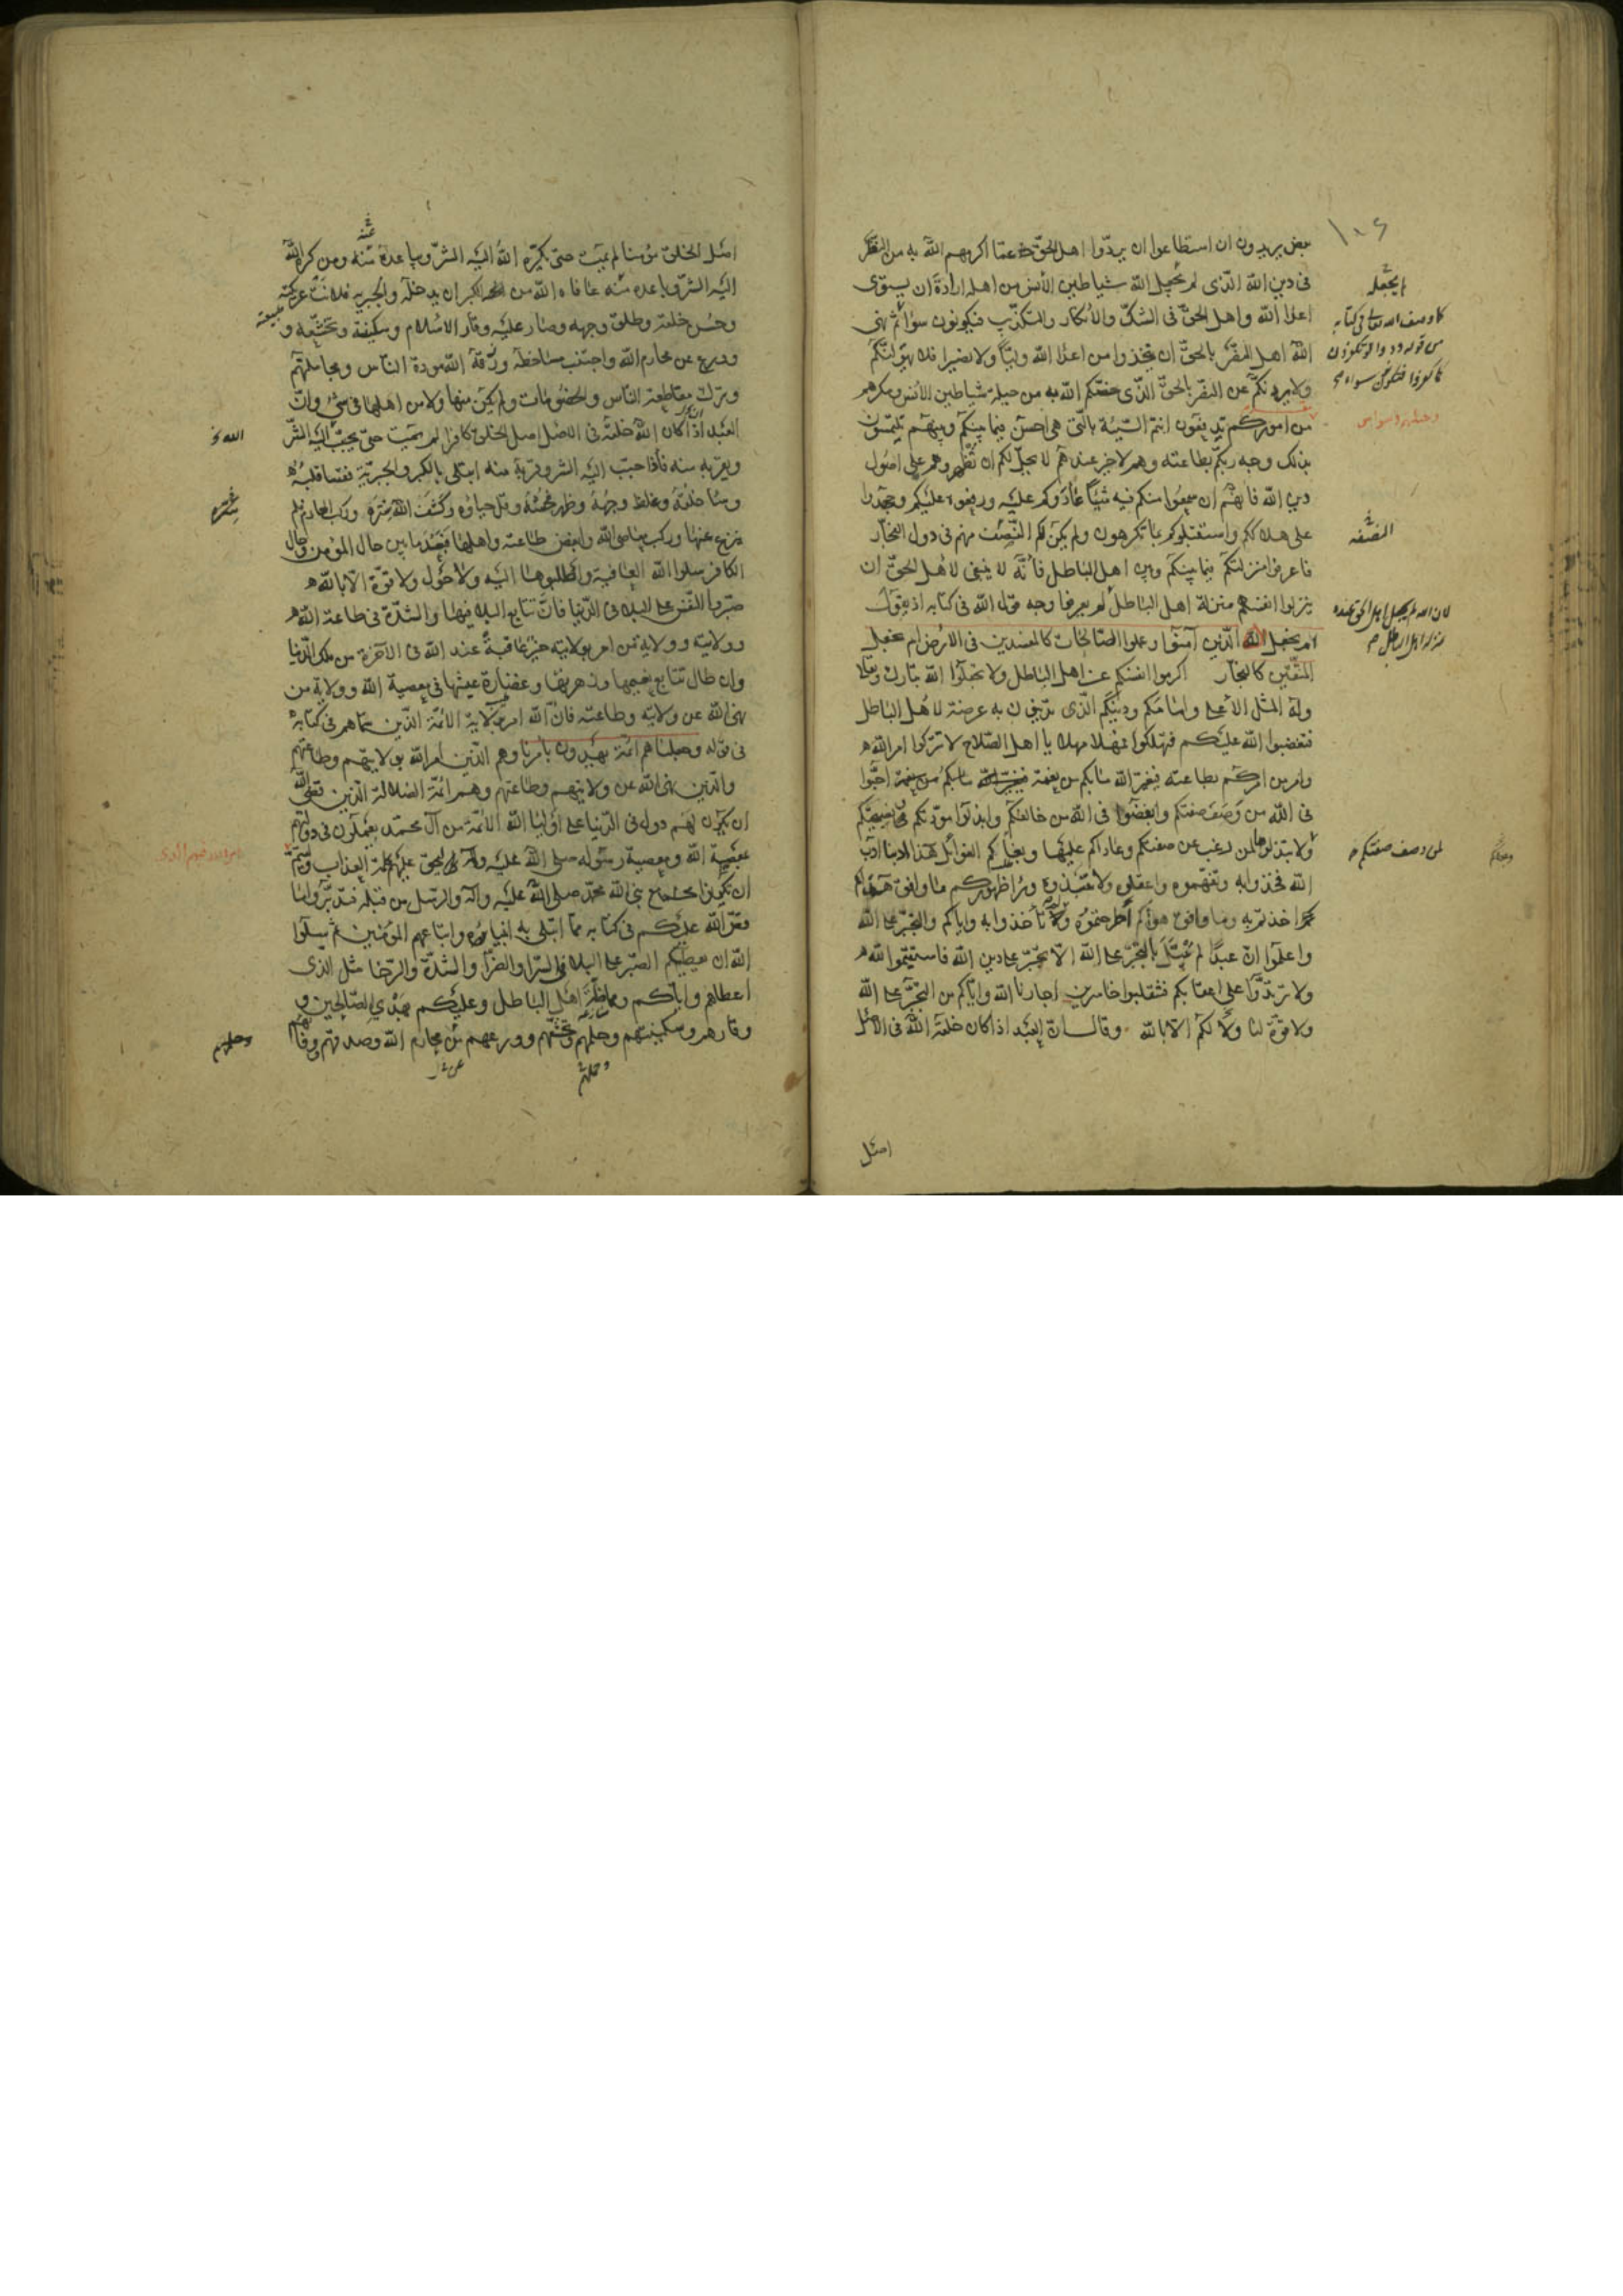 بعض يريدون ان استطاعوا ان يردّوا اهل الحقّ عمّا اكرمهم الله به من النظر
فى دين الله الّذى لم يجعل الله شياطين الأنس من اهله ارادة ان يستوى
اعدا الله واهل الحقّ فى الشكّ والأنكار والتكذيب فيكونون سوآ ثم نهى
الله اهل النصر بالحقّ ان يتخذوا من اعدا الله وليّا ولا نصيرا فلا يهولنّكم
ولا يردنّكم عن النصر بالحقّ الّذى خصّكم الله به من حيلة شياطين الأنس ومكرهم
من اموركم تدفعون انتم السّيئة بالّتى هى احسن فيما بينكم وبينهم تلتمسون
بذلك وجه ربّكم بطاعته وهم لا خير عندهم لا يحلّ لكم ان تظهروهم على اصول
دين الله فانّهم ان سمعوا منكم فيه شيئا عادوكم عليه ورفعوه عليكم وجهدوا
على هلاككم واستقبلوكم بما تكرهون ولم يكن لكم النّصف منهم فى دول الفجّار
فاعرفوا منزلتكم فيما بينكم وبين اهل الباطل فانّه لا ينبغى لأهل الحقّ ان
ينزلوا انفسهم منزلة اهل الباطل لم يعرفوا وجه قول الله فى كتابه اذ يقول
ام نجعل الّذين آمنوا وعملوا الصّالحات كالمفسدين فى الأرض ام نجعل
المتّقين كالفجّار اكرموا انفسكم عن اهل الباطل ولا تجعلوا الله تبارك وتعالى
وله المثل الأعلى وامامكم ودينكم الّذى تدينون به عرضة لأهل الباطل
فتغضبوا الله عليكم فتهلكوا فمهلا مهلا يا اهل الصّلاح لا تتركوا امر الله
وامر من امركم بطاعته فيغيّر الله ما بكم من نعمة احبّوا
فى الله من وصف صفتكم وابغضوا فى الله من خالفكم وابذلوا مودّتكم ونصيحتكم
ولا تبتذلوها لمن رغب عن صفتكم وعاداكم عليها وبغاكم الغوائل هذا ادبنا ادب
الله فخذوا به وتفهّموه واعقلوه ولا تنبذوه ورا ظهوركم ما وافق هداكم
اخذتم به وما وافق هواكم اطرحتموه ولا تأخذوا به واياكم والتجبّر على الله
واعلموا انّ عبدًا لم يبتل بالتجبّر على الله الّا تجبّر على دين الله فاستقيموا لله
ولا ترتدّوا على اعقابكم فتنقلبوا خاسرين اجارنا الله وايّاكم من التجبّر على الله
ولا قوّة لنا ولا لكم الا بالله وقال انّ العبد اذا كان خلقه الله فى الاصل
اصل
كما وصف الله تعالى فى كتابه
من قوله ودوا لو تكفرون
كما كفروا فتكونون سواء
النصفة
لان الله لم يجعل اهل الحق عنده
منزلة اهل الباطل
لمن وصف صفتكم
اصل الخلق مؤمنا لم يمت حتى يكرّه الله اليه الشرّ ويباعده منه ومن كرّه الله
اليه الشرّ وباعده منه عافاه الله من الكبر ان يدخله والجبرية فلانت عريكته
وحسن خلقه وطلق وجهه وصار عليه وقار الاسلام وسكينته وتخشّعه و
وورع عن محارم الله واجتنب مساخطه ورزقه الله مودة النّاس ومجاملتهم
وترك مقاطعة النّاس والخصومات ولم يكن منها ولا من اهلها فى شئ وانّ
العبد اذا كان الله خلقه فى الاصل اصل الخلق كافرا لم يمت حتى يحبّب اليه الشرّ
ويقربه منه فاذا حبّب اليه الشر وقرّبه منه ابتلى بالكبر والجبريّة فقسا قلبه
وسا خلقه وغلظ وجهه وظهر فحشه وقلّ حياؤه وكشف الله ستره وركب المحارم فلم
ينزع عنها وركب معاصى الله وابغض طاعته واهلها فبعد ما بين حال المؤمن وحال
الكافر سلوا الله العافية واطلبوها اليه ولا حول ولا قوّة الّا بالله
صبّروا النّفس على البلا فى الدّنيا فانّ تتابع البلا فيها والشدّة فى طاعة الله
وولايته وولاية من امر بولايته خير عاقبة عند الله فى الآخرة من ملك الدّنيا
وان طال تتابع نعيمها وزهرتها وغضارة عيشها فى معصية الله وولاية من
نهى الله عن ولايته وطاعته فانّ الله امر بولاية الائمّة الّذين سمّاهم فى كتابه
فى قوله وجعلناهم ائمّة يهدون بأمرنا وهم الّذين امر الله بولايتهم وطاعتهم
والّذين نهى الله عن ولايتهم وطاعتهم وهم ائمّة الضلالة الّذين قضى الله
ان يكون لهم دول فى الدّنيا على اوليا الله الائمّة من آل محمّد يعملون فى دولتهم
بمعصية الله ومعصية رسوله صلى الله عليه وآله ليحقّ عليهم كلمة العذاب وليتمّ
ان تكونوا مع نبى الله محمّد صلى الله عليه وآله والرسل من قبله فتدبّروا ما
قصّ الله عليكم فى كتابه ممّا ابتلى به انبياءه واتباعهم المؤمنين ثم سلوا
الله ان يعطيكم الصبر على البلا فى السرّا والضرّا والشدّة والرّخا مثل الّذى
اعطاهم وايّاكم ومماظّة اهل الباطل وعليكم بهدى الصّالحين و
وقارهم وسكينتهم وحلمهم وتخشّعهم وورعهم عن محارم الله وصدقهم ووفائهم
الله
ستره
وحلمهم